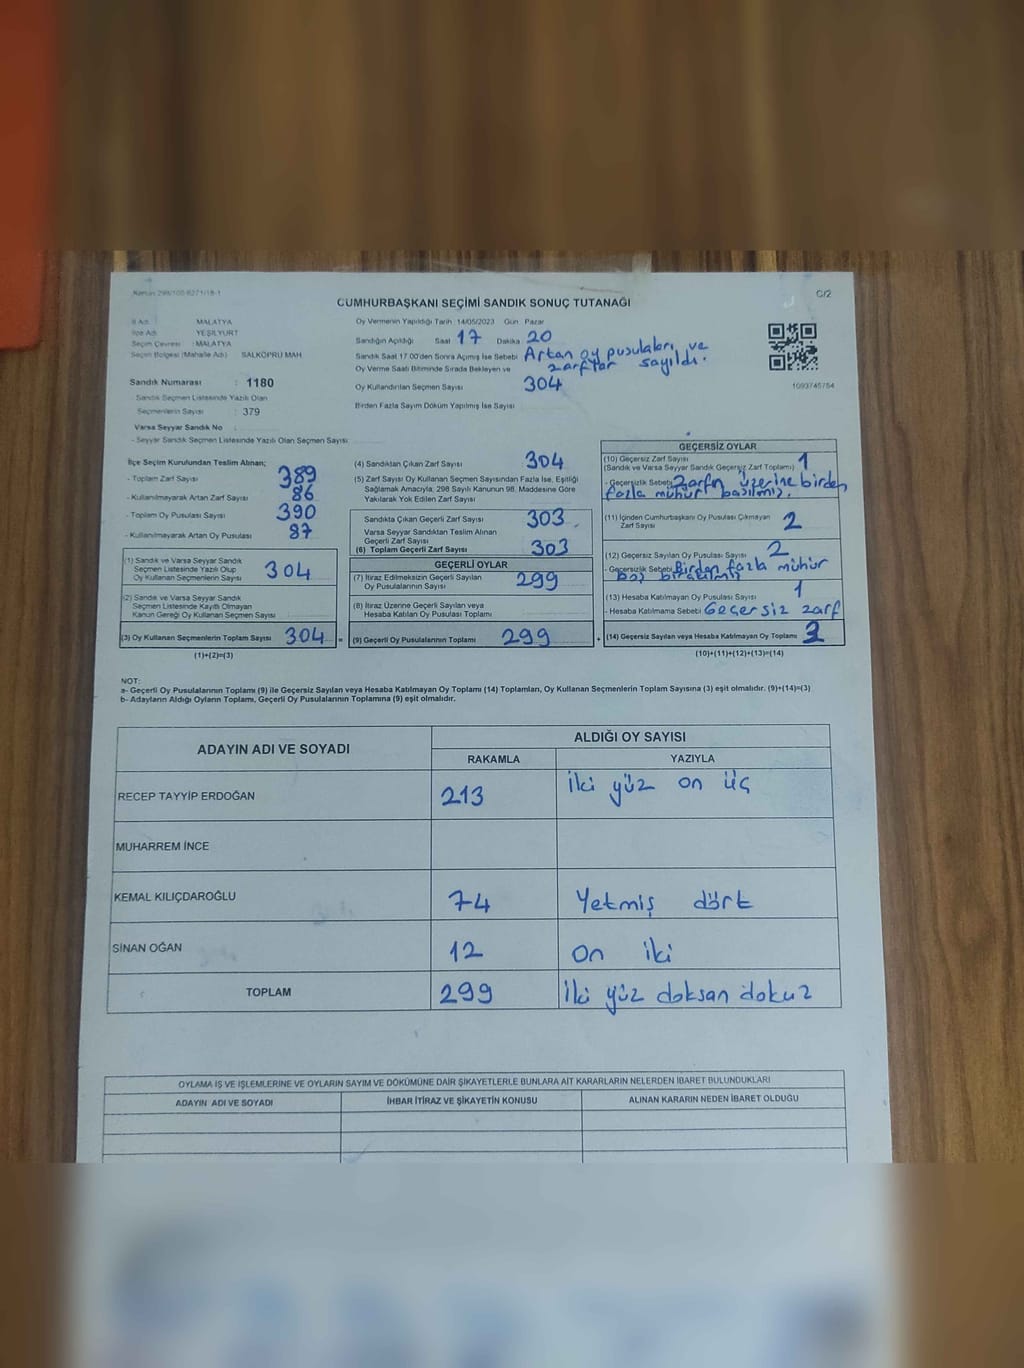 Kanun 298/100-6271/18-1
C/2
CUMHURBAŞKANI SEÇİMİ SANDIK SONUÇ TUTANAĞI
İl Adı MALATYA
İlçe Adı YEŞİLYURT
Seçim Çevresi : MALATYA
Seçim Bölgesi (Mahalle Adı) SALKÖPRÜ MAH
Sandık Numarası : 1180
Sandık Seçmen Listesinde Yazılı Olan
Seçmenlerin Sayısı : 379
Varsa Seyyar Sandık No
- Seyyar Sandık Seçmen Listesinde Yazılı Olan Seçmen Sayısı
Oy Vermenin Yapıldığı Tarih 14/05/2023 Gün Pazar
Sandığın Açıldığı Saat 17 Dakika 20
Sandık Saat 17.00'den Sonra Açımış İse Sebebi Artan oy pusulaları ve
zarflar sayıldı.
Oy Verme Saati Bitiminde Sırada Bekleyen ve
Oy Kullandırılan Seçmen Sayısı 304
Birden Fazla Sayım Döküm Yapılmış İse Sayısı
1093745754
İlçe Seçim Kurulundan Teslim Alınan;
- Toplam Zarf Sayısı 389
- Kullanılmayarak Artan Zarf Sayısı 86
- Toplam Oy Pusulası Sayısı 390
- Kullanılmayarak Artan Oy Pusulası 87
(1) Sandık ve Varsa Seyyar Sandık
Seçmen Listesinde Yazılı Olup
Oy Kullanan Seçmenlerin Sayısı 304
(2) Sandık ve Varsa Seyyar Sandık
Seçmen Listesinde Kayıtlı Olmayan
Kanun Gereği Oy Kullanan Seçmen Sayısı
(3) Oy Kullanan Seçmenlerin Toplam Sayısı 304 =
(1)+(2)=(3)
(4) Sandıktan Çıkan Zarf Sayısı 304
(5) Zarf Sayısı Oy Kullanan Seçmen Sayısından Fazla İse, Eşitliği
Sağlamak Amacıyla; 298 Sayılı Kanunun 98. Maddesine Göre
Yakılarak Yok Edilen Zarf Sayısı
Sandıkta Çıkan Geçerli Zarf Sayısı 303
Varsa Seyyar Sandıktan Teslim Alınan
Geçerli Zarf Sayısı
(6) Toplam Geçerli Zarf Sayısı 303
GEÇERLİ OYLAR
(7) İtiraz Edilmeksizin Geçerli Sayılan
Oy Pusulalarının Sayısı 299
(8) İtiraz Üzerine Geçerli Sayılan veya
Hesaba Katılan Oy Pusulası Toplamı
(9) Geçerli Oy Pusulalarının Toplamı 299 +
GEÇERSİZ OYLAR
(10) Geçersiz Zarf Sayısı
(Sandık ve Varsa Seyyar Sandık Geçersiz Zarf Toplamı) 1
- Geçersizlik Sebebi Zarfın üzerine birden
fazla mühür basılmış.
(11) İçinden Cumhurbaşkanı Oy Pusulası Çıkmayan
Zarf Sayısı 2
(12) Geçersiz Sayılan Oy Pusulası Sayısı 2
- Geçersizlik Sebebi Birden fazla mühür
boş bırakılmış
(13) Hesaba Katılmayan Oy Pusulası Sayısı 1
- Hesaba Katılmama Sebebi Geçersiz zarf
(14) Geçersiz Sayılan veya Hesaba Katılmayan Oy Toplamı
(10)+(11)+(12)+(13)=(14)
NOT:
a- Geçerli Oy Pusulalarının Toplamı (9) ile Geçersiz Sayılan veya Hesaba Katılmayan Oy Toplamı (14) Toplamları, Oy Kullanan Seçmenlerin Toplam Sayısına (3) eşit olmalıdır. (9)+(14)=(3)
b- Adayların Aldığı Oyların Toplamı, Geçerli Oy Pusulalarının Toplamına (9) eşit olmalıdır.
ADAYIN ADI VE SOYADI
ALDIĞI OY SAYISI
RAKAMLA YAZIYLA
RECEP TAYYİP ERDOĞAN 213 İki yüz on üç
MUHARREM İNCE
KEMAL KILIÇDAROĞLU 74 Yetmiş dört
SİNAN OĞAN 12 on iki
TOPLAM 299 İki yüz doksan dokuz
OYLAMA İŞ VE İŞLEMLERİNE VE OYLARIN SAYIM VE DÖKÜMÜNE DAİR ŞİKAYETLERLE BUNLARA AİT KARARLARIN NELERDEN İBARET BULUNDUKLARI
ADAYIN ADI VE SOYADI İHBAR İTİRAZ VE ŞİKAYETİN KONUSU ALINAN KARARIN NEDEN İBARET OLDUĞU